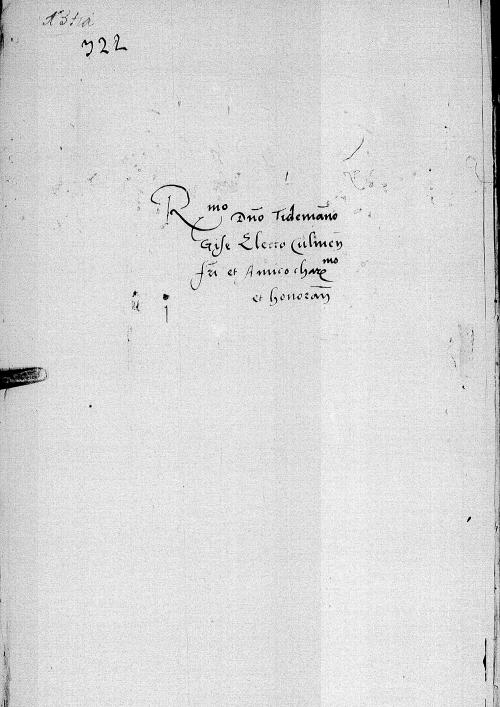 722
Rmo Dno Tidemano
Gise Electo Culmen
fri et Amico charmo
et honoran